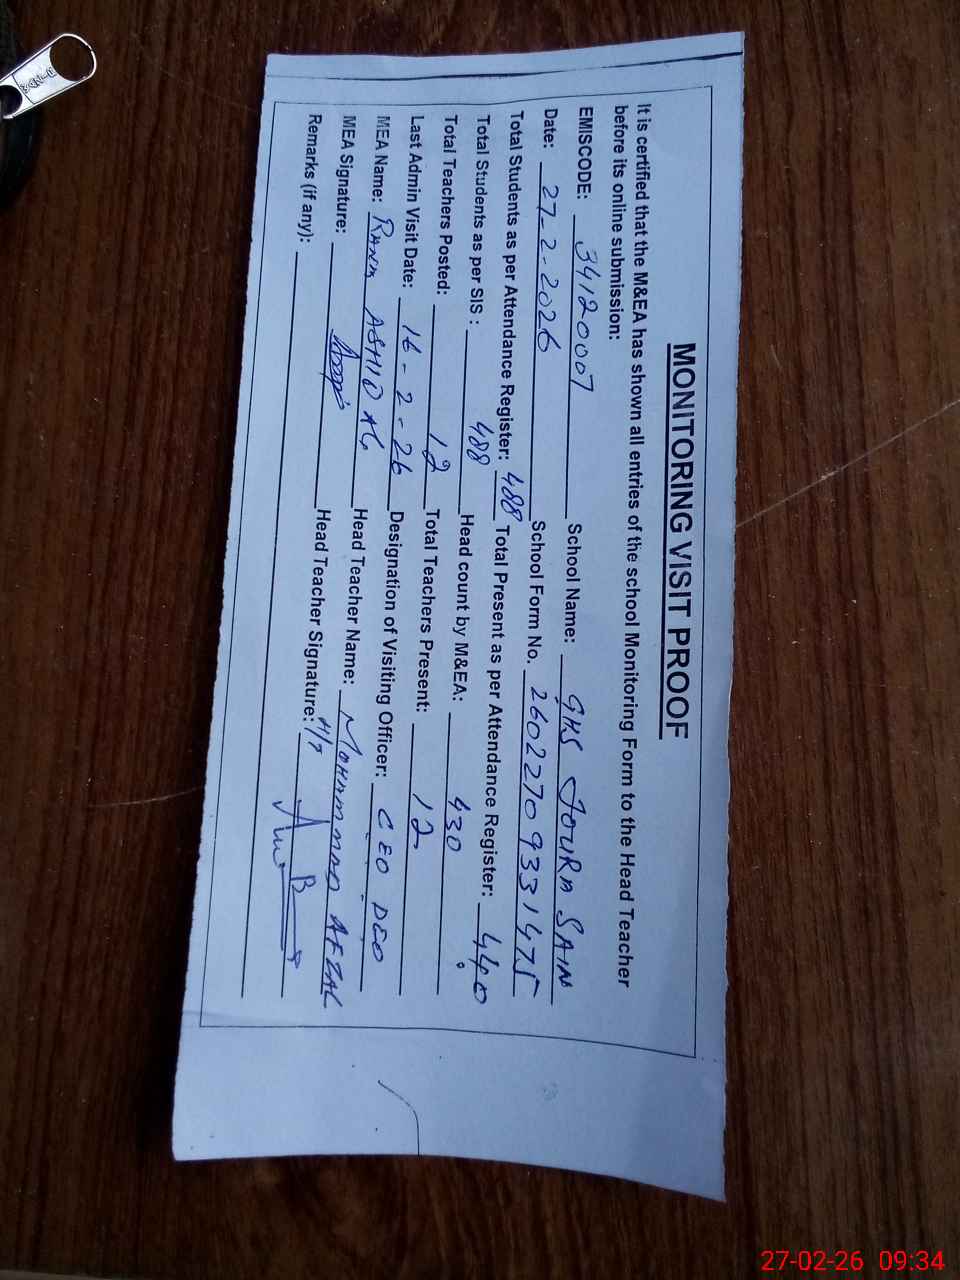 MONITORING VISIT PROOF
It is certified that the M&EA has shown all entries of the school Monitoring Form to the Head Teacher
before its online submission:
EMISCODE: 34120007 School Name: GHS JOURA SAIN
Date: 27-2-2026 School Form No. 260227093 31475
Total Students as per Attendance Register: 488 Total Present as per Attendance Register: 440
Total Students as per SIS : 488 Head count by M&EA: 430
Total Teachers Posted: 12 Total Teachers Present: 12
Last Admin Visit Date: 16-2-26 Designation of Visiting Officer: CEO DEO
MEA Name: RANA Head Teacher Name: MOHAMMAD AFZAL
MEA Signature: Head Teacher Signature:
Remarks (if any):
27-02-26 09:34